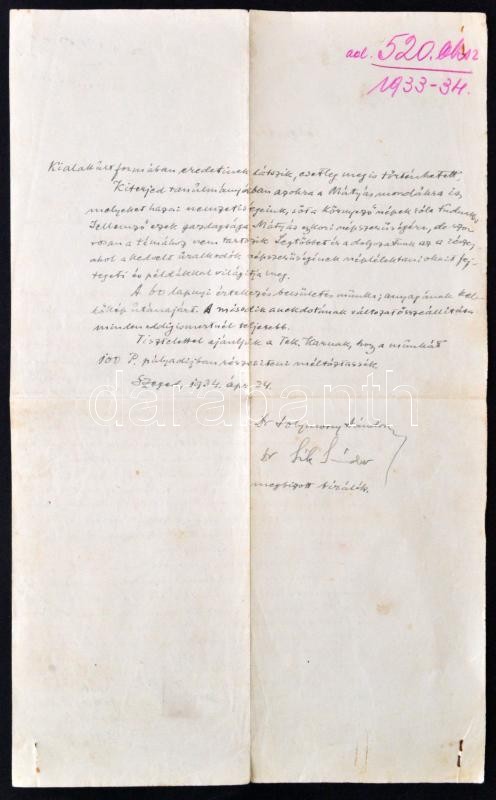 ad. 520.
1933-34.
Kialakult formában eredetinek látszik, esetleg meg is történhetett.
Kiterjed tanulmányában azokra a Mátyás mondákra is,
melyeket hazai nemzetiségeink, sőt a környező népek róla tudnak.
Jellemző ezek gazdagsága Mátyás egykori népszerűségére, de szo-
rosan a témához nem tartozik. Legtöbbet ér a dolgozatban az a rész,
ahol a kedvelt uralkodók népszerűségének néplélektani okait fej-
tegeti és példákkal világítja meg.
A 60 lapnyi értekezés becsületes munka; anyagának kel-
lőkép utánajárt. A második anekdotának változat összeállítása
minden eddig ismertnél teljesebb.
Tisztelettel ajánljuk a Tek. Karnak, hogy a munkát
100 P. pályadíjban részesíteni méltóztassék.
Szeged, 1934. ápr. 24.
Dr Solymossy Sándor
dr Sík Sándor
megbízott bírálók.
darabanth